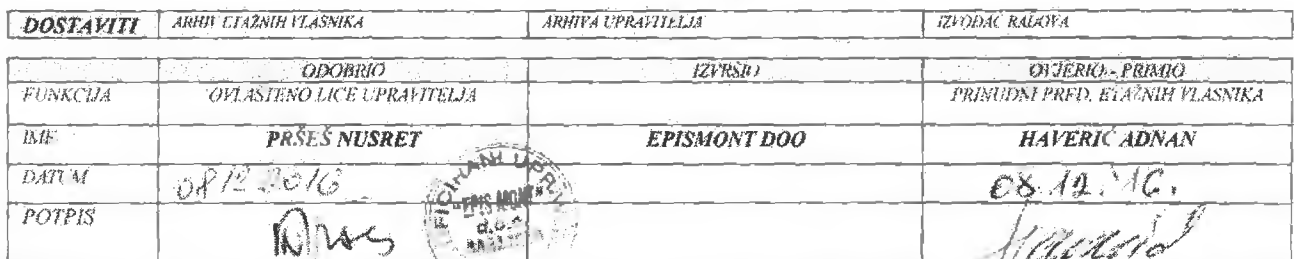 DOSTAVITI ARHIV ETAŽNIH VLASNIKA ARHIVA UPRAVITELJA IZVOĐAČ RADOVA
ODOBRIO IZVRŠIO OVJERIO - PRIMIO
FUNKCIJA OVLAŠTENO LICE UPRAVITELJA PRINUDNI PRED. ETAŽNIH VLASNIKA
IME PRŠEŠ NUSRET EPISMONT DOO HAVERIĆ ADNAN
DATUM 08 12 2016 08.12.16.
POTPIS
d.o.o.